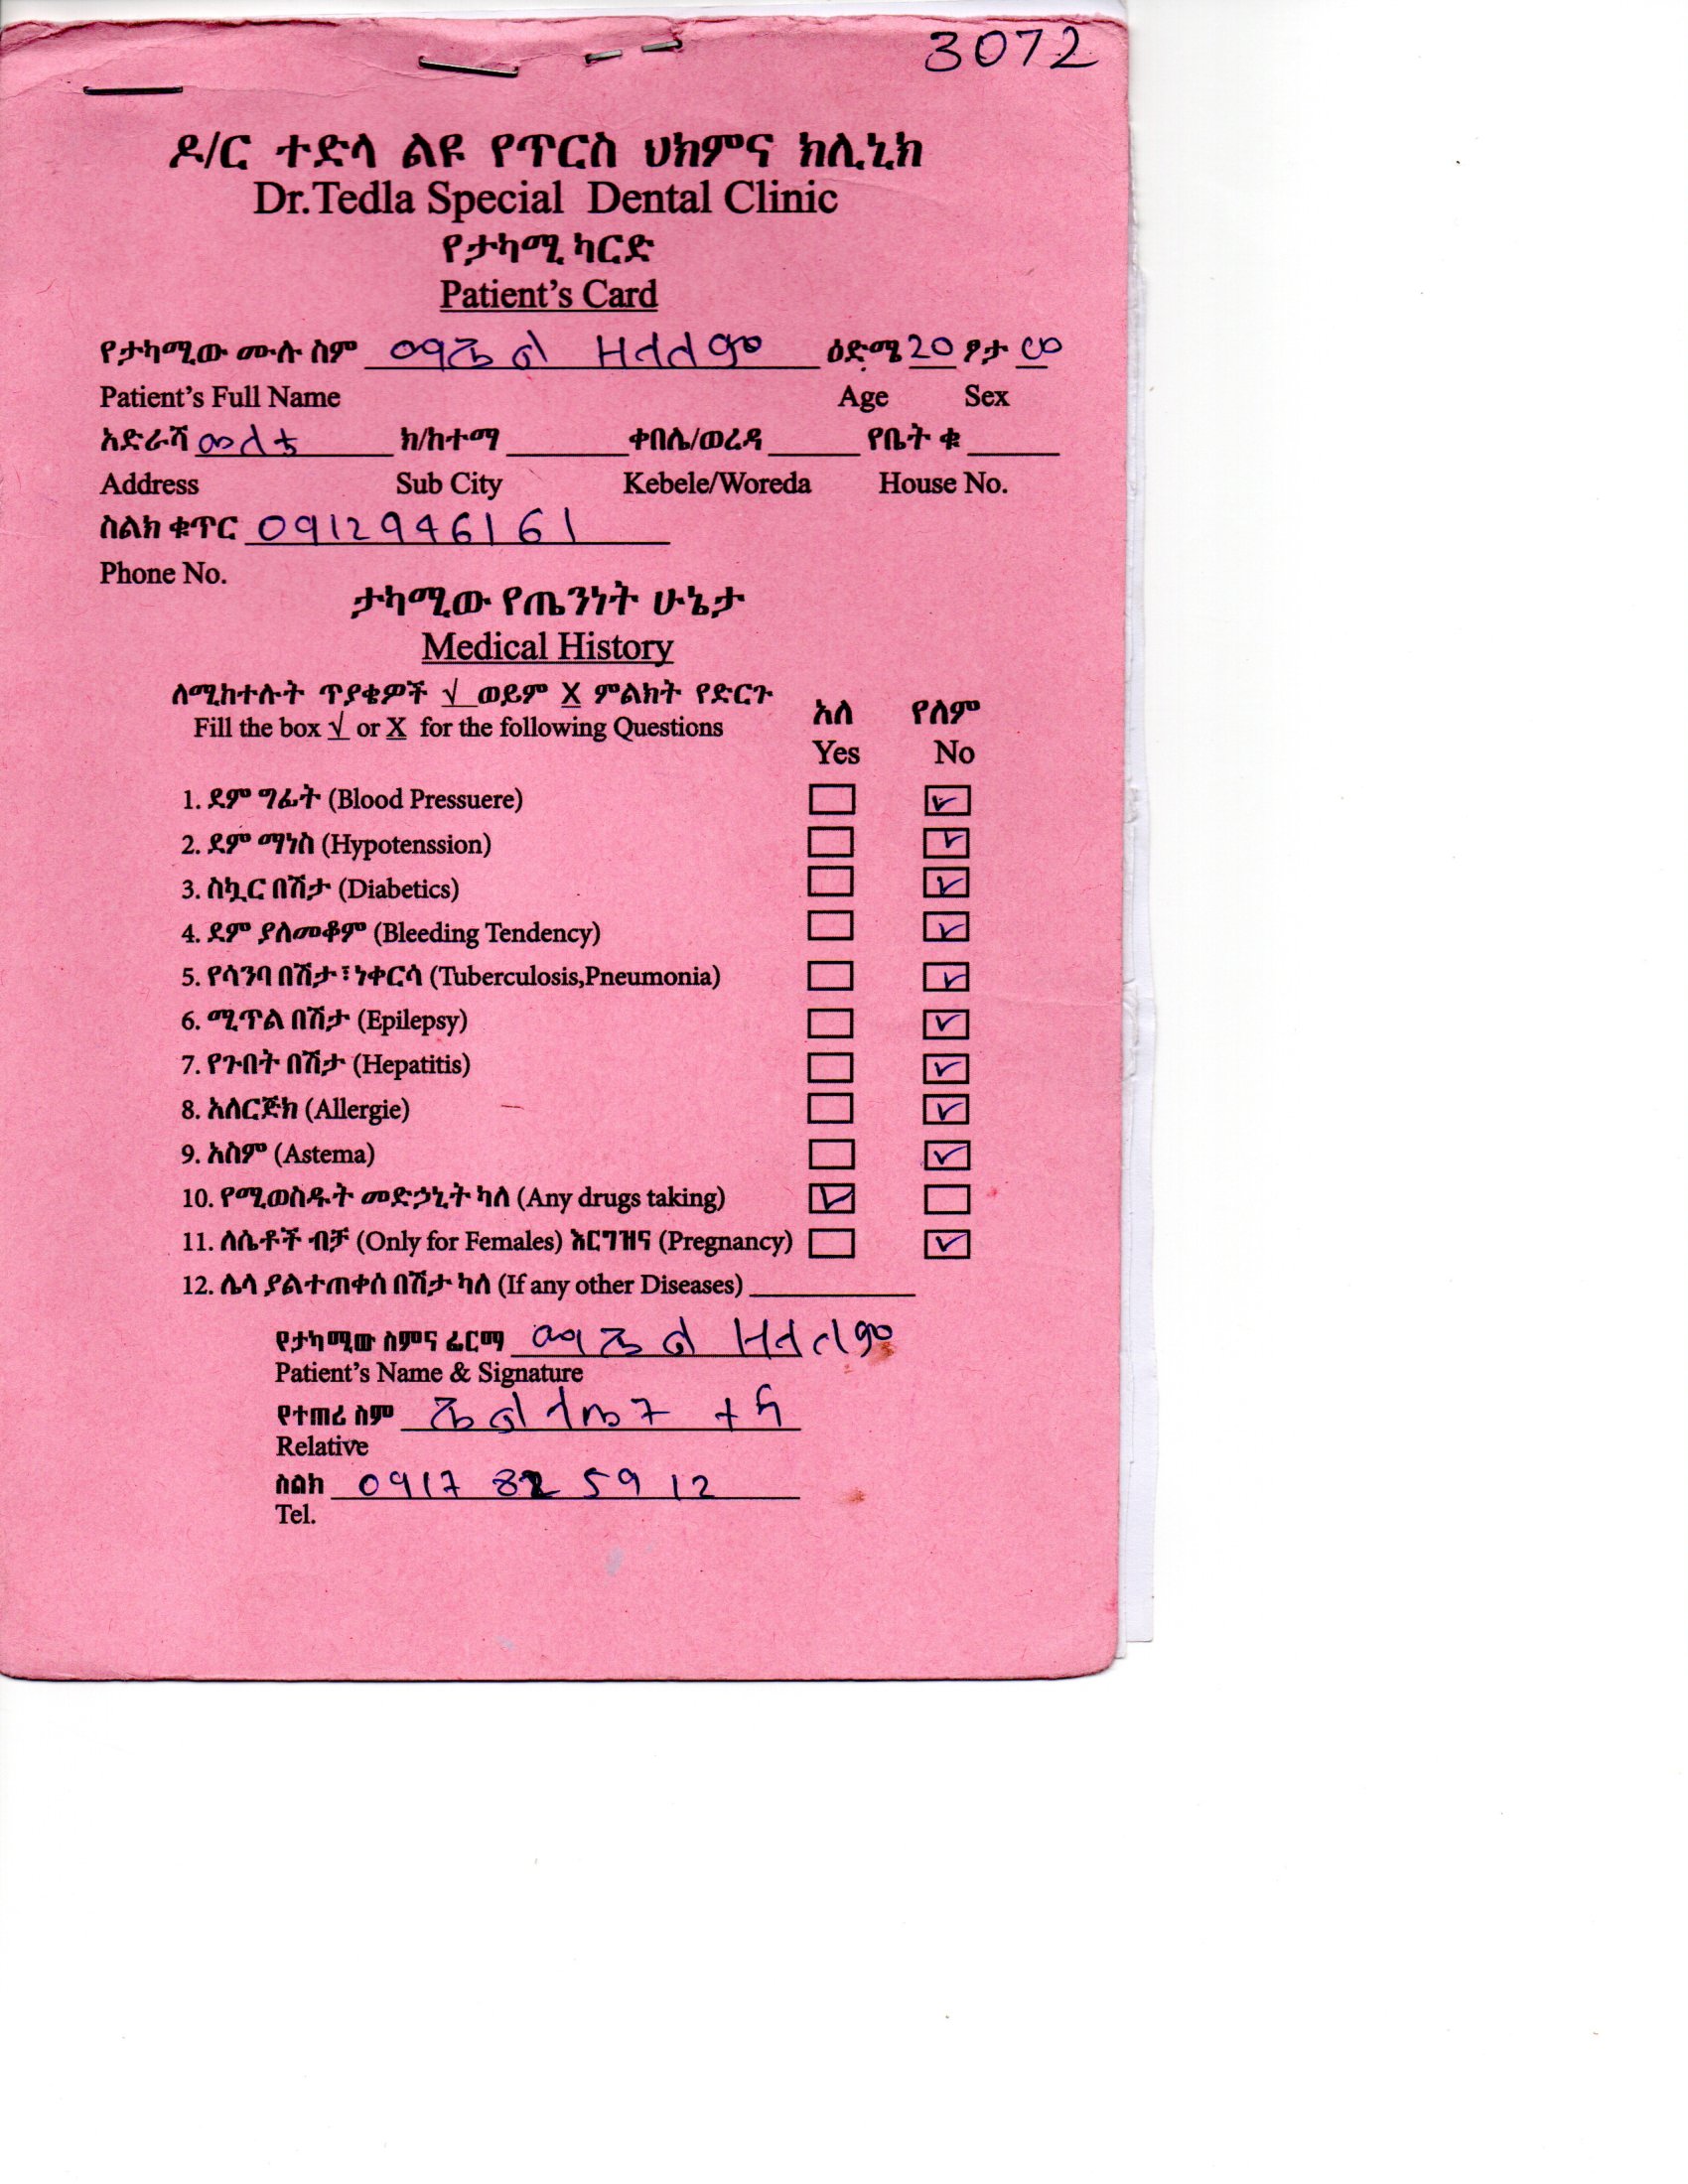 3072
ዶ/ር ተድላ ልዩ የጥርስ ህክምና ክሊኒክ
Dr.Tedla Special Dental Clinic
የታካሚ ካርድ
Patient's Card
የታካሚው ሙሉ ስም ዕድሜ 20 ፆታ
Patient's Full Name Age Sex
አድራሻ ክ/ከተማ ቀበሌ/ወረዳ የቤት ቁ
Address Sub City Kebele/Woreda House No.
ስልክ ቁጥር 0912946161
Phone No.
ታካሚው የጤንነት ሁኔታ
Medical History
ለሚከተሉት ጥያቄዎች √ ወይም X ምልክት የድርጉ
Fill the box √ or X for the following Questions
አለ የለም
Yes No
1. ደም ግፊት (Blood Pressuere)
2. ደም ማነስ (Hypotenssion)
3. ስኳር በሽታ (Diabetics)
4. ደም ያለመቆም (Bleeding Tendency)
5. የሳንባ በሽታ፣ነቀርሳ (Tuberculosis,Pneumonia)
6. ሚጥል በሽታ (Epilepsy)
7. የጉበት በሽታ (Hepatitis)
8. አለርጅክ (Allergie)
9. አስም (Astema)
10. የሚወስዱት መድኃኒት ካለ (Any drugs taking)
11. ለሴቶች ብቻ (Only for Females) እርግዝና (Pregnancy)
12. ሌላ ያልተጠቀሰ በሽታ ካለ (If any other Diseases)
የታካሚው ስምና ፊርማ
Patient's Name & Signature
የተጠሪ ስም
Relative
ስልክ 0917 82 59 12
Tel.